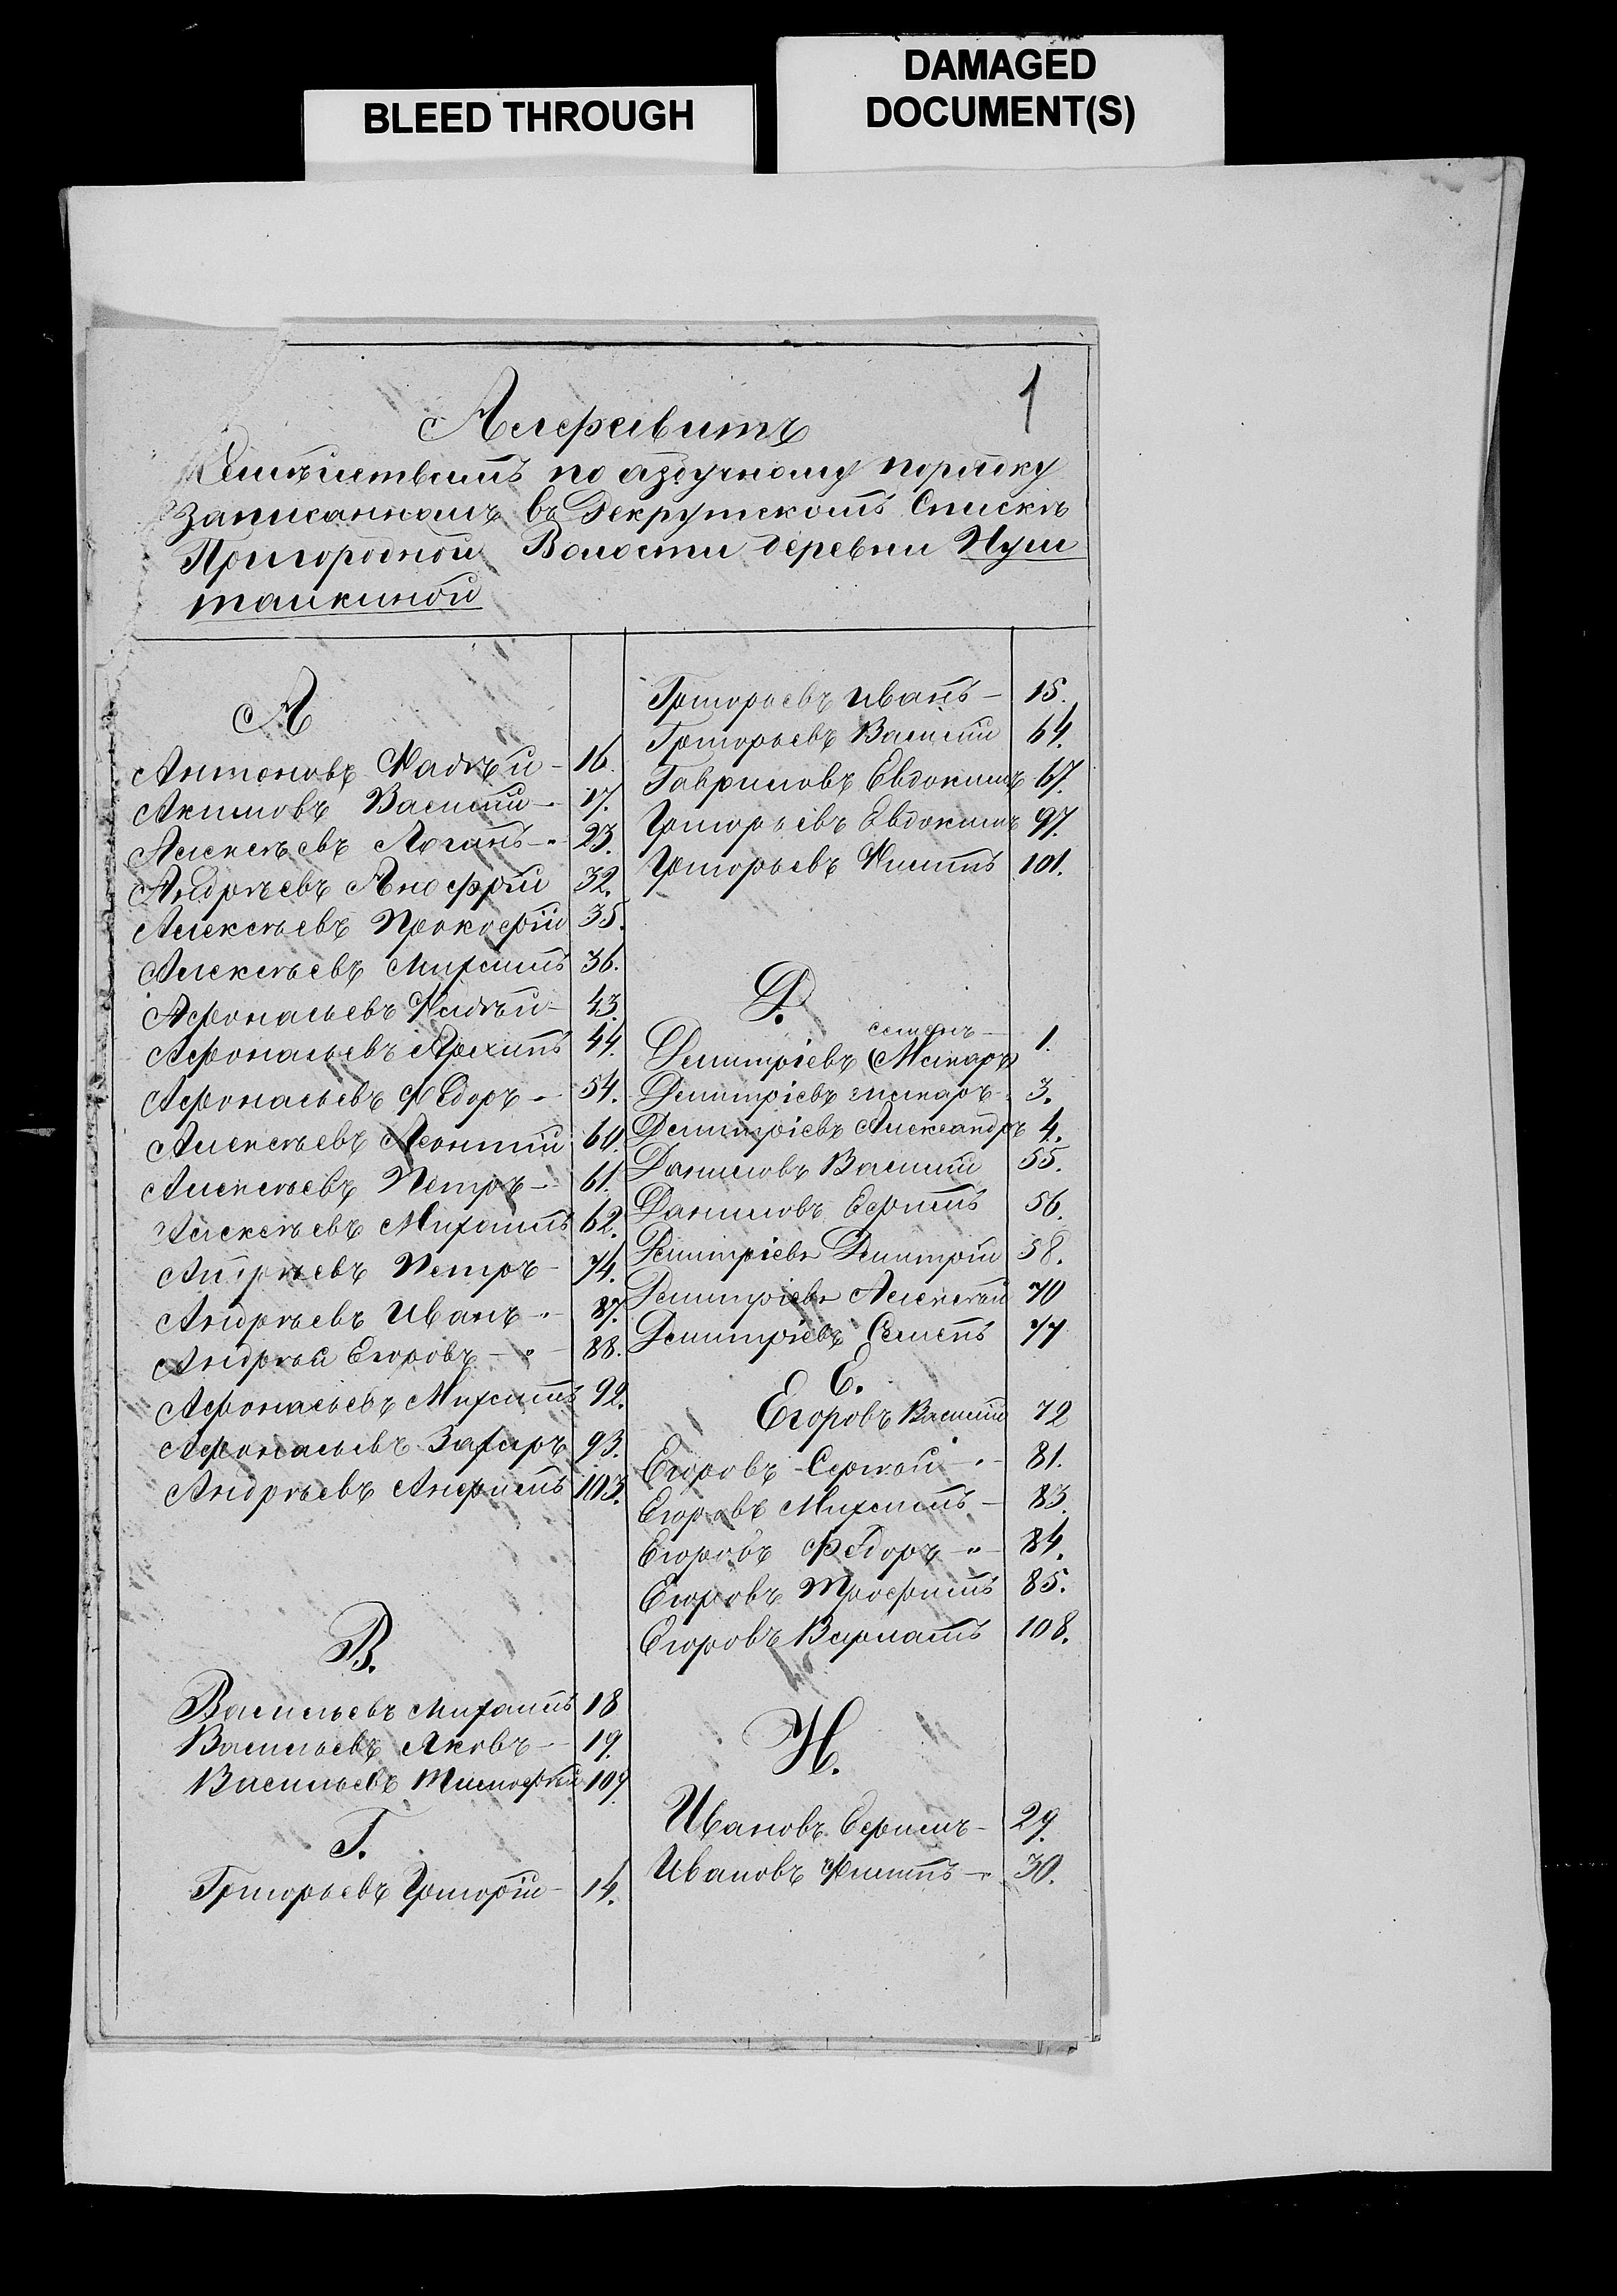 BLEED THROUGH
DAMAGED
DOCUMENT(S)
1
Алфавитъ
Семействамъ по азбучному порядку
записаннымъ въ Рекрутскомъ Спискѣ
Пригородной Волости деревни Пуш
талкиной
А
Антоновъ Фадѣй - 16.
Акимовъ Василій - 17.
Алексѣевъ Логинъ - 23.
Андрѣевъ Анофрій 32.
Алексѣевъ Прокофій 35.
Алексѣевъ Михаилъ 36.
Афонасьевъ Фадѣй - 43.
Афонасьевъ Архипъ 44.
Афонасьевъ Ѳедоръ - 54.
Алексѣевъ Леонтій 60.
Алексѣевъ Петръ - 61.
Алексѣевъ Михаилъ 62.
Андрѣевъ Петръ - 74.
Андрѣевъ Иванъ - 87.
Андрѣй Егоровъ - 88.
Афонасьевъ Михаилъ 92.
Афонасьевъ Захаръ 93.
Андрѣевъ Анфимъ 103.
В.
Васильевъ Михаилъ 18
Васильевъ Яковъ - 19.
Васильевъ Тимофѣй 107.
Г.
Григорьевъ Григорій - 14.
Григорьевъ Иванъ - 15.
Григорьевъ Василій 64.
Гавриловъ Евдокимъ 67.
Григорьевъ Евдокимъ 97.
Григорьевъ Филипъ 101.
Д.
Семенъ
Демитріевъ (Макаръ) 1.
Демитріевъ Макаръ - 3.
Демитріевъ Александръ 4.
Даниловъ Василій 55.
Даниловъ Ефимъ 56.
Демитріевъ Демитрій 58.
Демитріевъ Алексѣй 70
Демитріевъ Семенъ 77
Е.
Егоровъ Василій 72
Егоровъ Сергѣй - 81.
Егоровъ Михаилъ - 83.
Егоровъ Ѳедоръ - 84.
Егоровъ Трофимъ 85.
Егоровъ Варламъ 108.
И.
Ивановъ Ефимъ - 29.
Ивановъ Филипъ - 30.